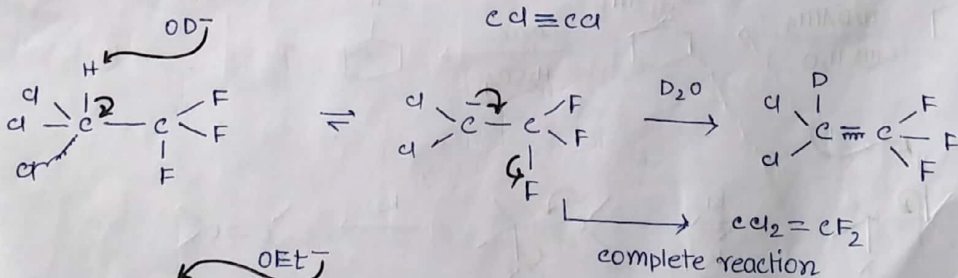 OD⁻
Cl≡Cl
H
Cl
Cl
C — C
F
F
F
⇌
Cl
Cl
C⁻ — C
F
F
F
D₂O
D
Cl
Cl
C = C
F
F
F
CCl₂ = CF₂
complete reaction
OEt⁻